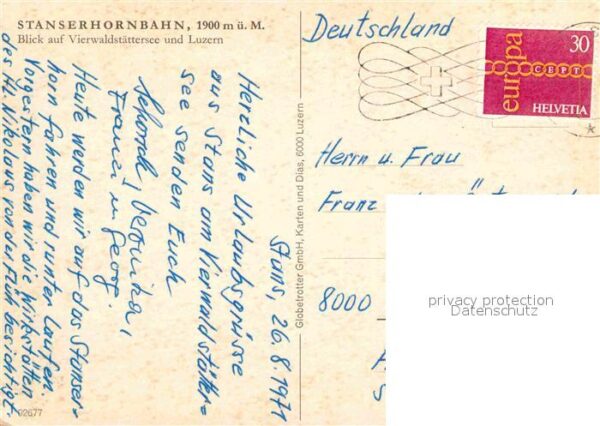 STANSERHORNBAHN, 1900 m ü. M.
Blick auf Vierwaldstättersee und Luzern
Stans, 26.8.1971
Herzliche Urlaubsgrüsse
aus Stans am Vierwaldstätter-
see senden Euch
Veronika,
Franz u. Georg.
Heute werden wir auf das Stanser-
horn fahren und runter laufen.
Vorgestern haben wir die Wirkstätten
des Hl. Nikolaus von der Flüh besichtigt.
02677
Globetrotter GmbH, Karten und Dias, 6000 Luzern
Deutschland
europa
30
CEPT
HELVETIA
Herrn u. Frau
Franz
8000
privacy protection
Datenschutz